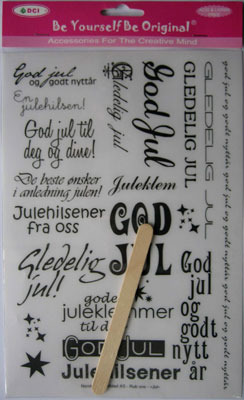 DCI
Be Yourself Be Original
Accessories For The Creative Mind
God jul
og godt nyttår
En
julehilsen!
God jul til
deg og dine!
De beste ønsker
i anledning julen!
Julehilsener
fra oss
Gledelig
jul!
Gledelig
jul
God Jul
GLEDELIG JUL
GLEDELIG JUL
god jul og godt nyttår
Juleklem
GOD
JUL
gode
juleklemmer
til d
GOD JUL
Julehilsener
God
jul
og
godt
nytt
år